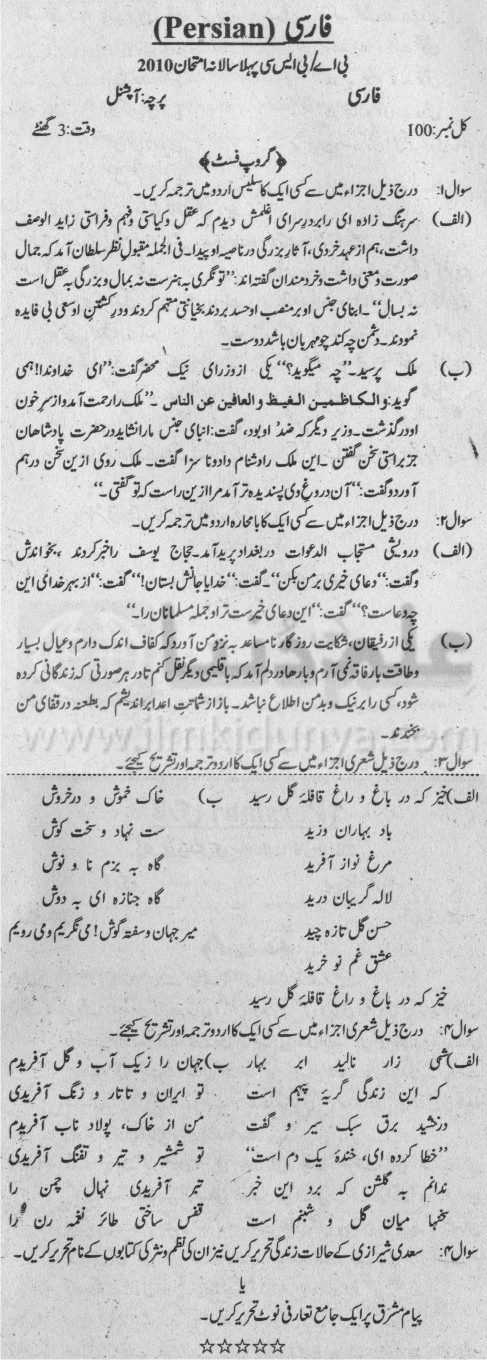 فارسی (Persian)
بی اے/بی ایس سی پہلا سالانہ امتحان 2010
فارسی پرچہ: آپشنل
کل نمبر: 100 وقت: 3 گھنٹے
﴿گروپ فسٹ﴾
سوال ۱: درج ذیل اجزاء میں سے کسی ایک کا سلیس اُردو میں ترجمہ کریں۔
(الف) سرہنگ زادہ ای را بر در سرای اغلمش دیدم کہ عقل و کیاستی و فہم و فراستی زاید الوصف
داشت، ہم از عہد خردی، آثار بزرگی در ناصیہ او پیدا۔ فی الجملہ مقبول نظر سلطان آمد کہ جمال
صورت و معنی داشت و خردمندان گفتہ اند: ’’تونگری بہ ہنرست نہ بمال و بزرگی بہ عقل است
نہ بسال‘‘۔ ابنای جنس او بر منصب او حسد بردند بخیانتی متہم کردند و در کشتن او سعی بی فایدہ
نمودند۔ دشمن چہ کند چو مہربان باشد دوست۔
(ب) ملک پرسید۔ ’’چہ میگوید؟‘‘ یکی از وزرای نیک محضر گفت: ’’ای خداوند! ہمی
گوید: والکاظمین الغیظ والعافین عن الناس ۔‘‘ ملک را رحمت آمد و از سر خون
او درگذشت۔ وزیر دیگر کہ ضد او بود، گفت: انبای جنس ما را نشاید در حضرت پادشاهان
جز براستی سخن گفتن۔ این ملک را دشنام داد و نا سزا گفت۔ ملک روی ازین سخن درہم
آورد و گفت: ’’آن دروغ وی پسندیدہ تر آمد مرا ازین راست کہ تو گفتی۔‘‘
سوال ۲: درج ذیل اجزاء میں سے کسی ایک کا بامحاورہ اردو میں ترجمہ کریں۔
(الف) درویشی مستجاب الدعوات در بغداد پرید آمد۔ حجاج یوسف را خبر کردند، بخواندش
و گفت: ’’دعای خیری بر من بکن‘‘۔ گفت: ’’خدایا جانش بستان!‘‘ گفت: ’’از بہر خدای این
چہ دعاست؟‘‘ گفت: ’’این دعای خیرست ترا و جملہ مسلمانان را۔‘‘
(ب) یکی از رفیقان، شکایت روزگار نا مساعد بہ نزد من آورد کہ کفاف اندک دارم و عیال بسیار
و طاقت بار فاقہ نمی آرم و بارہا در دلم آمد کہ باقلیمی دیگر نقل کنم تا در ہر صورتی کہ زندگانی کردہ
شود، کسی را بر نیک و بد من اطلاع نباشد۔ باز از شماتت اعدا بر اندیشم کہ بطعنہ در قفای من
بخندند۔
سوال ۳: درج ذیل شعری اجزاء میں سے کسی ایک کا اردو ترجمہ اور تشریح کیجئے۔
الف) خیز کہ در باغ و راغ قافلہ گل رسید ب) خاک خموش و درخروش
باد بہاران وزید ست نہاد و سخت کوش
مرغ نواز آفرید گاہ بہ بزم نا و نوش
لالہ گریبان درید گاہ جنازہ ای بہ دوش
حسن گل تازہ چید میر جہان و سفتہ گوش! می نگریم و می رویم
عشق غم نو خرید
خیز کہ در باغ و راغ قافلہ گل رسید
سوال ۴: درج ذیل شعری اجزاء میں سے کسی ایک کا اردو ترجمہ اور تشریح کیجئے۔
الف) شبی زار نالید ابر بہار ب) جہان را زیک آب و گل آفریدم
کہ این زندگی گریۂ پیہم است تو ایران و تاتار و زنگ آفریدی
درخشید برق سبک سیر و گفت من از خاک، پولاد ناب آفریدم
’’خطا کردہ ای، خندۂ یک دم است‘‘ تو شمشیر و تیر و تفنگ آفریدی
ندانم بہ گلشن کہ برد این خبر تبر آفریدی نہال چمن را
سخنہا میان گل و شبنم است قفس ساختی طائر نغمہ زن را
سوال ۴: سعدی شیرازی کے حالات زندگی تحریر کریں نیز ان کی نظم و نثر کی کتابوں کے نام تحریر کریں۔
یا
پیام مشرق پر ایک جامع تعارفی نوٹ تحریر کریں۔
☆☆☆☆☆
www.ilmkidunya.com